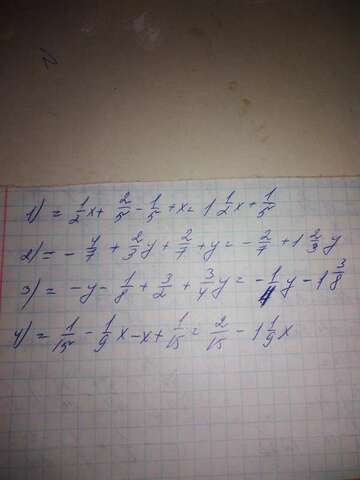 1) = 1/2 x + 2/5 - 1/5 + x = 1 1/2 x + 1/5
2) = - 4/7 + 2/3 y + 2/7 + y = - 2/7 + 1 2/3 y
3) = - y - 1/8 + 3/2 + 3/4 y = - 1/4 y - 1 3/8
4) = 1/15 - 1/9 x - x + 1/15 = 2/15 - 1 1/9 x